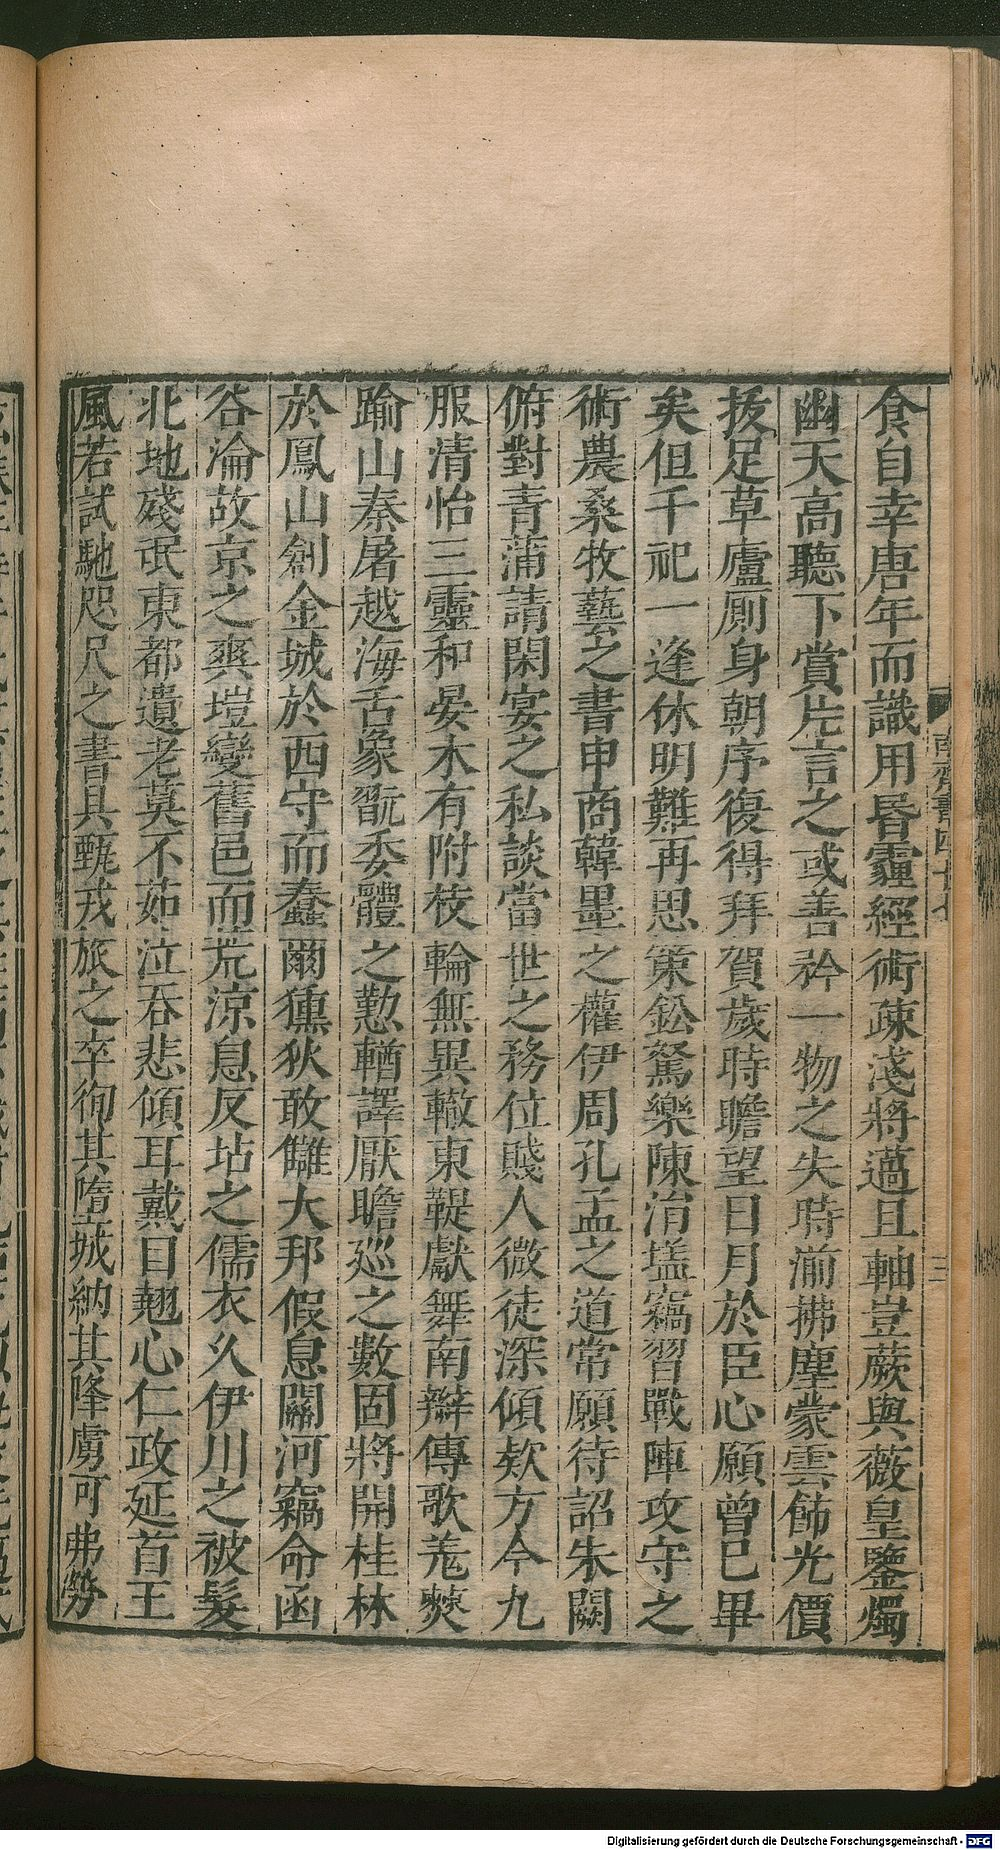 食自幸唐年而識用昬霾經術疎淺將邁且軸豈蕨與薇皇鑒燭
幽天高聽下賞片言之或善矜一物之失時湔拂塵蒙雲飾光價
拔足草廬厠身朝序復得拜賀歲時瞻望日月於臣心願曾已畢
矣但千祀一逢休明難再思策鈆駑樂陳涓壒竊習戰陣攻守之
術農桑牧藝之書申商韓墨之權伊周孔孟之道常願待詔朱闕
俯對青蒲請閑宴之私談當世之務位賤人微徒深傾欵方今九
服清怡三靈和晏木有附枝輪無異轍東鞮獻舞南辮傳歌羗僰
踰山秦屠越海舌象翫委體之勤輶譯厭瞻巡之數固將開桂林
於鳳山創金城於西守而蠢爾獯狄敢讎大邦假息關河竊命函
谷淪故京之爽塏變舊邑而荒涼息反坫之儒衣久伊川之被髮
北地殘氓東都遺老莫不茹泣吞悲傾耳戴目翹心仁政延首王
風若試馳咫尺之書具甄戎旅之卒徇其墮城納其降虜可弗勞
南齊書四十七
三
Digitalisierung gefördert durch die Deutsche Forschungsgemeinschaft - DFG